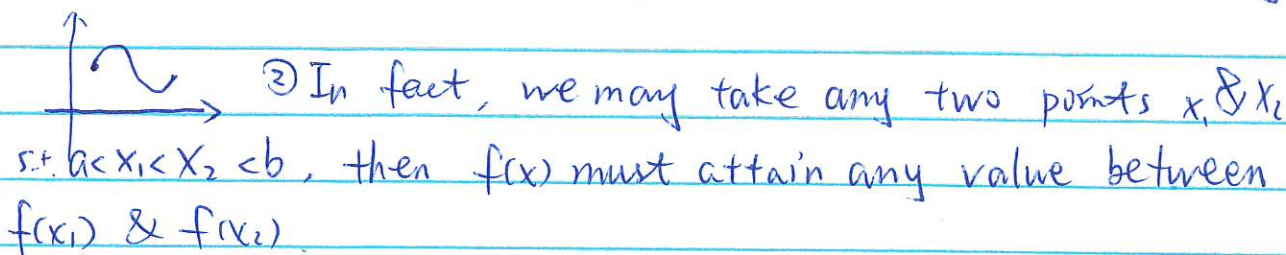 ② In fact, we may take any two points x₁ & x₂
s.t. a< x₁< x₂ <b, then f(x) must attain any value between
f(x₁) & f(x₂)